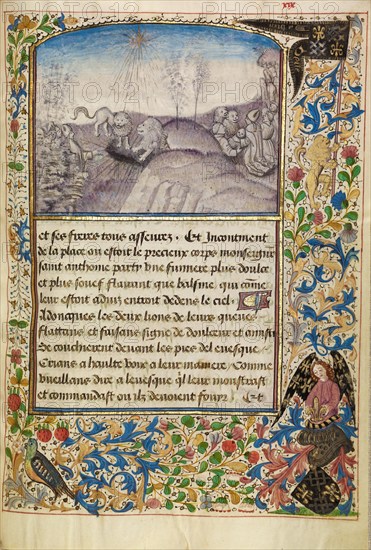 xix
et ses freres tous asseurez. Et Incontinent
de la place ou estoit le precieux corps monseignr
saint anthoine partit vne fumiere plus doulce
et plus souef flairant que balsme, qui come
leur estoit aduiz entroit dedens le ciel.
Adoncques les deux lions de leurs queues
flattans et faisans signe de doulceur et
se coucherent deuant les pies del euesque
Crians a haulte voix a leur maniere Comme
vueillans dire a leuesque ql leur monstrast
et commandast ou ilz deuoient fouyr. Et